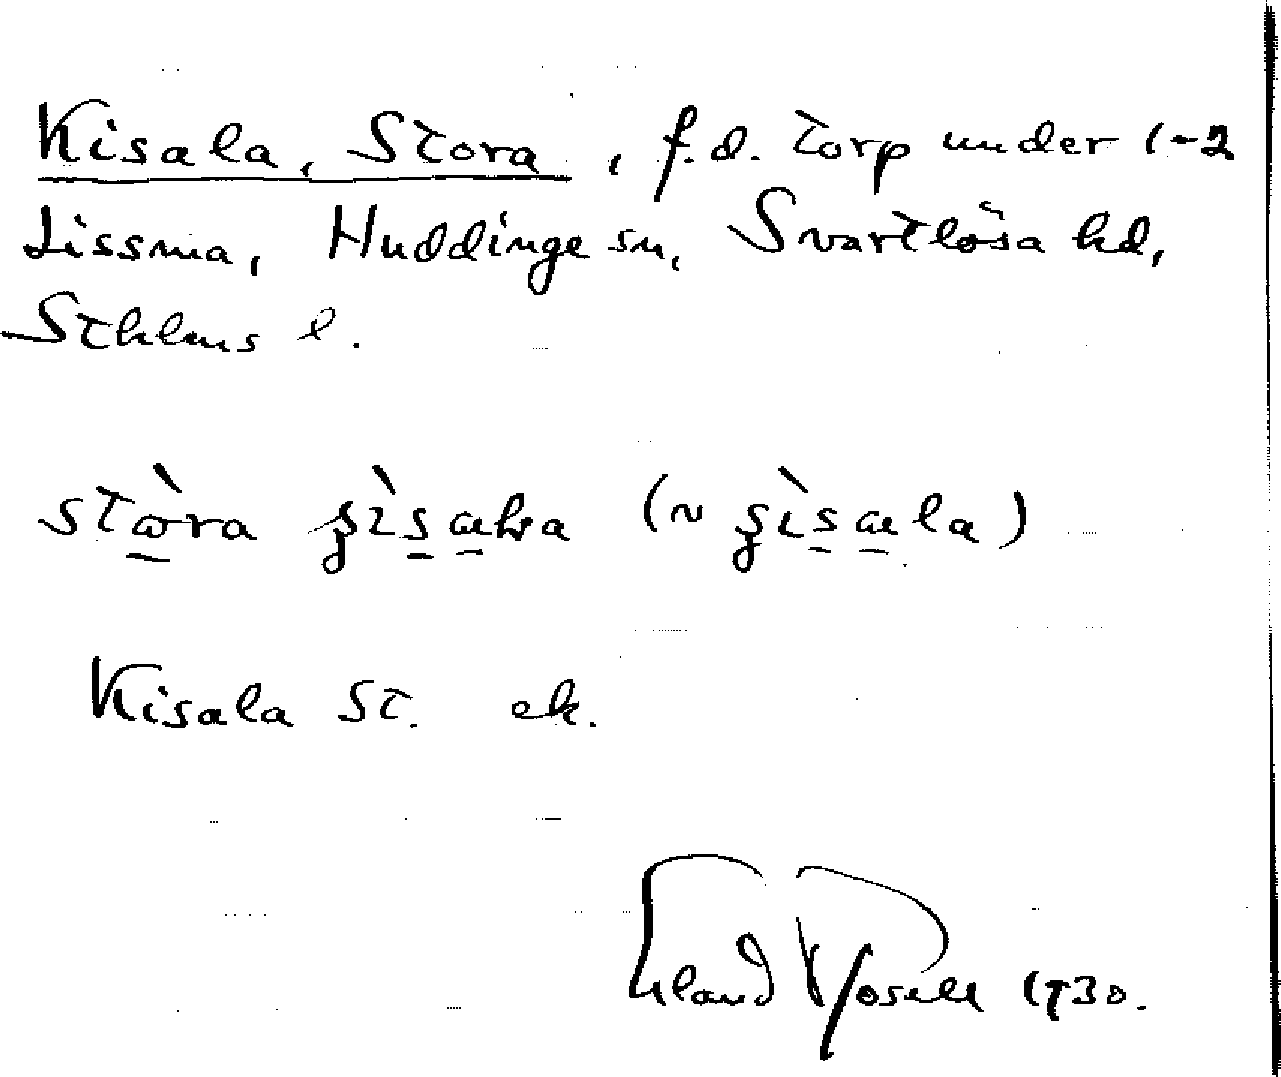 Kisala, Stora, f.d. torp under 1-2
Lissma, Huddinge sn, Svartlösa hd,
Sthlms l.
Kisala St. ek.
Erland Rosell 1930.